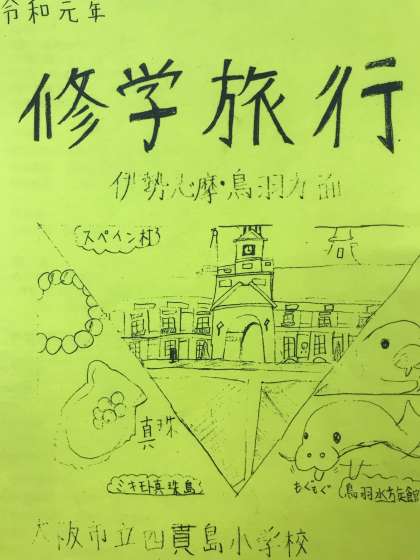 令和元年
修学旅行
伊勢志摩・鳥羽方面
スペイン村
真珠
ミキモト真珠島
もぐもぐ
鳥羽水族館
大阪市立四貫島小学校